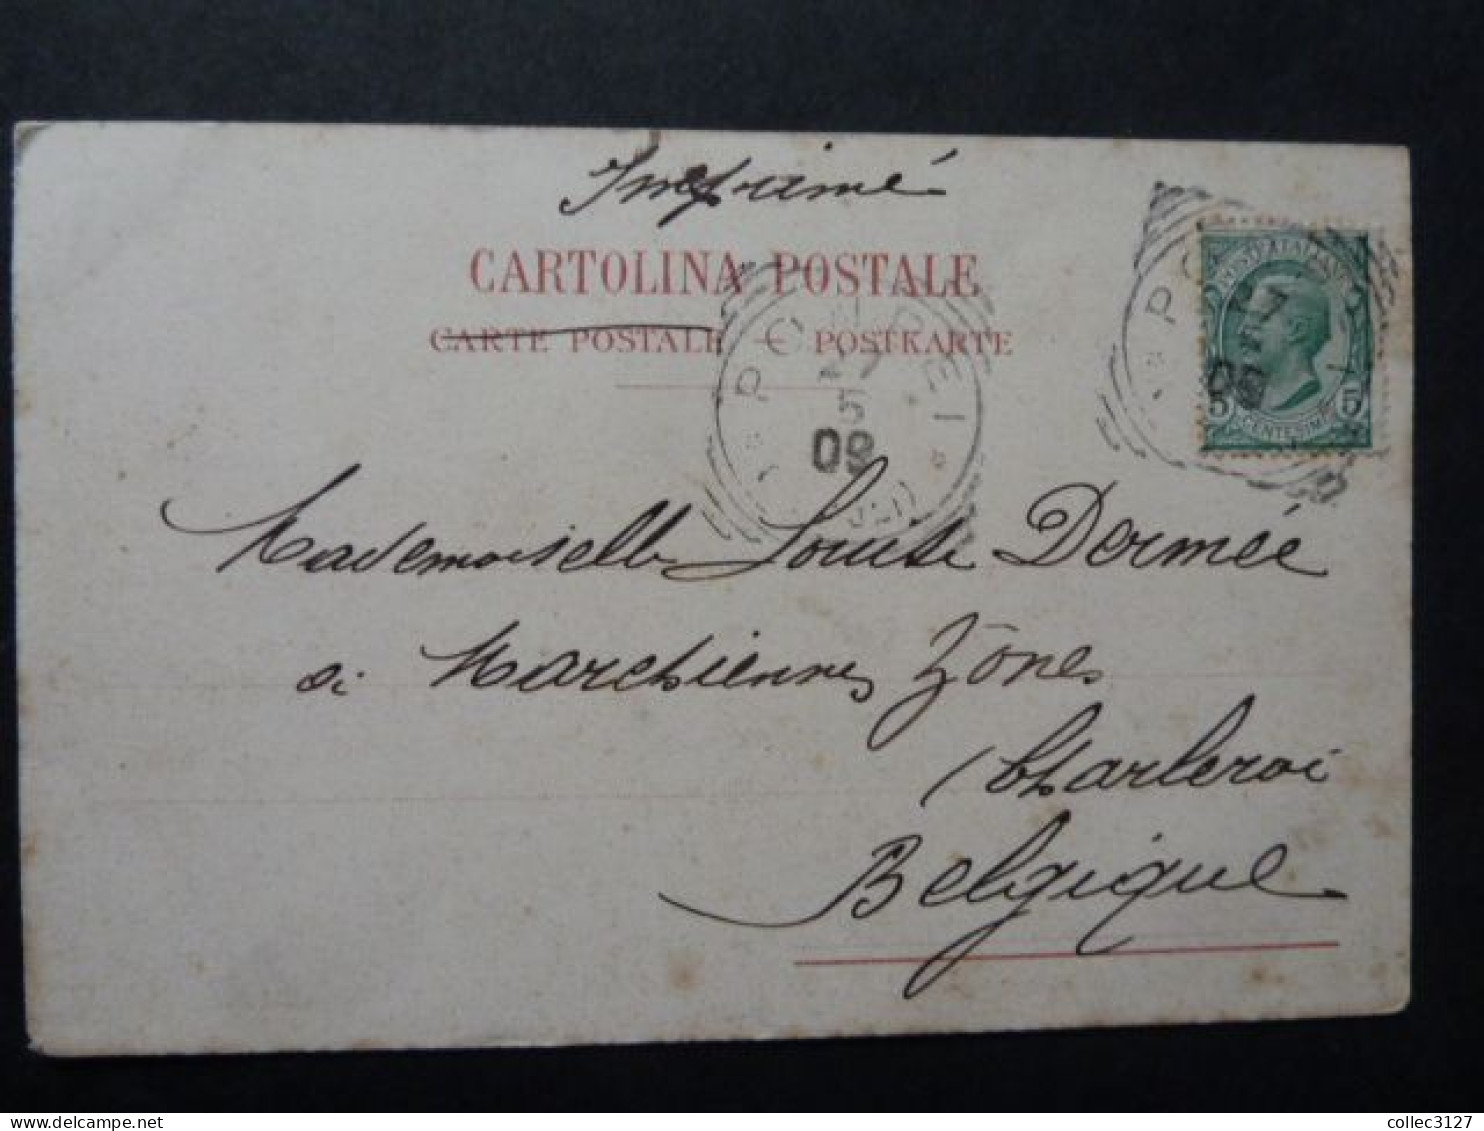 Imprimé
CARTOLINA POSTALE
CARTE POSTALE — POSTKARTE
POSTE ITALIANE
5 5
CENTESIMI
POMPEI
27
5
09
Mademoiselle Louise Dermée
à Marchiennes Zônes
Charleroi
Belgique
delcampe.net
collec3127